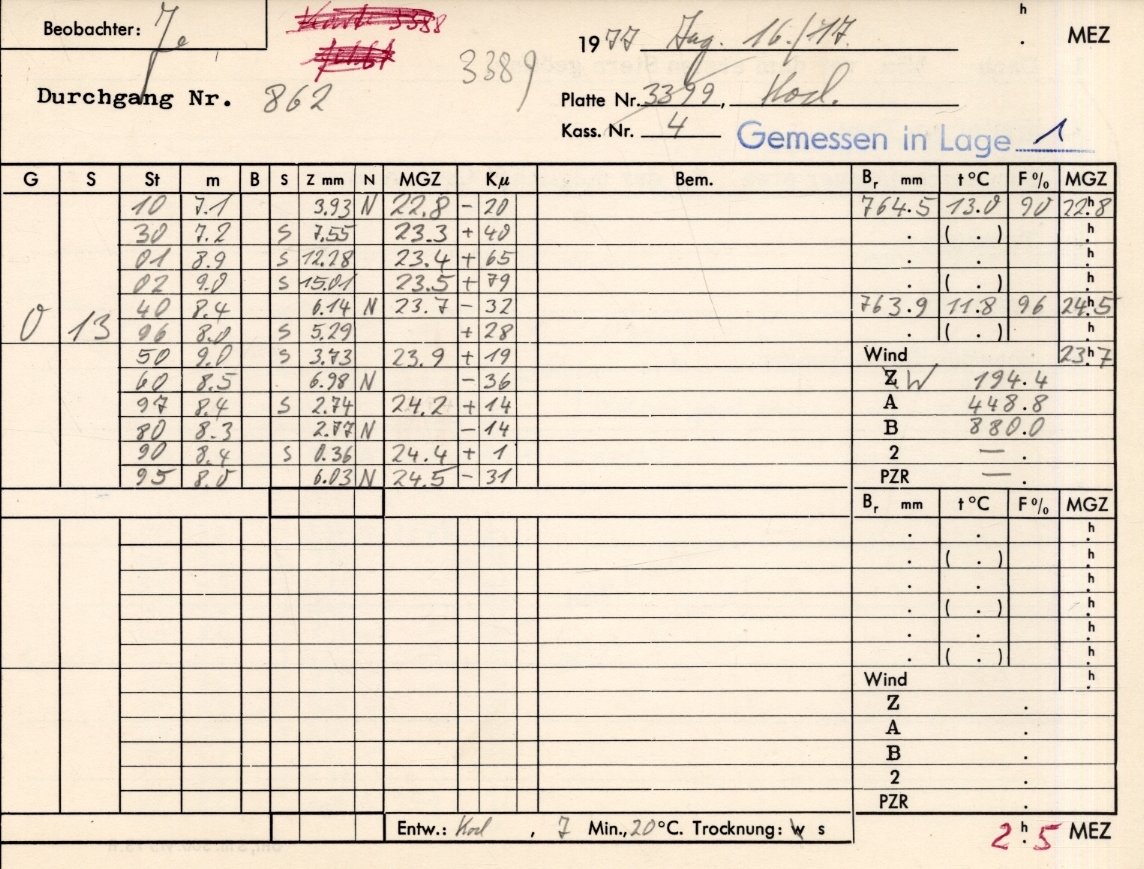 Beobachter: Je
3388
h . MEZ
1977 Aug. 16./17.
3389
Durchgang Nr. 862
Platte Nr. 3399, Kod.
Kass. Nr. 4
Gemessen in Lage 1
G S St m B S Z mm N MGZ Kµ Bem. Br mm t °C F % MGZ
10 7.1 3.93 N 22.8 - 20 764.5 13.0 90 22.h8
30 7.2 S 7.55 23.3 + 40 . ( . ) h.
01 8.9 S 12.28 23.4 + 65 . . h.
02 9.0 S 15.01 23.5 + 79 . ( . ) h.
0 13 40 8.4 6.14 N 23.7 - 32 763.9 11.8 96 24.h5
96 8.0 S 5.29 + 28 . ( . ) h.
50 9.0 S 3.73 23.9 + 19 Wind 23.h7
60 8.5 6.98 N - 36 Z W 194.4
97 8.4 S 2.74 24.2 + 14 A 448.8
80 8.3 2.77 N - 14 B 880.0
90 8.4 S 0.36 24.4 + 1 2 — .
95 8.0 6.03 N 24.5 - 31 PZR — .
Br mm t °C F % MGZ
. . h.
. ( . ) h.
. . h.
. ( . ) h.
. . h.
. ( . ) h.
Wind h.
Z .
A .
B .
2 .
PZR .
Entw.: Kod , 7 Min., 20 °C. Trocknung: w s
2.h5 MEZ